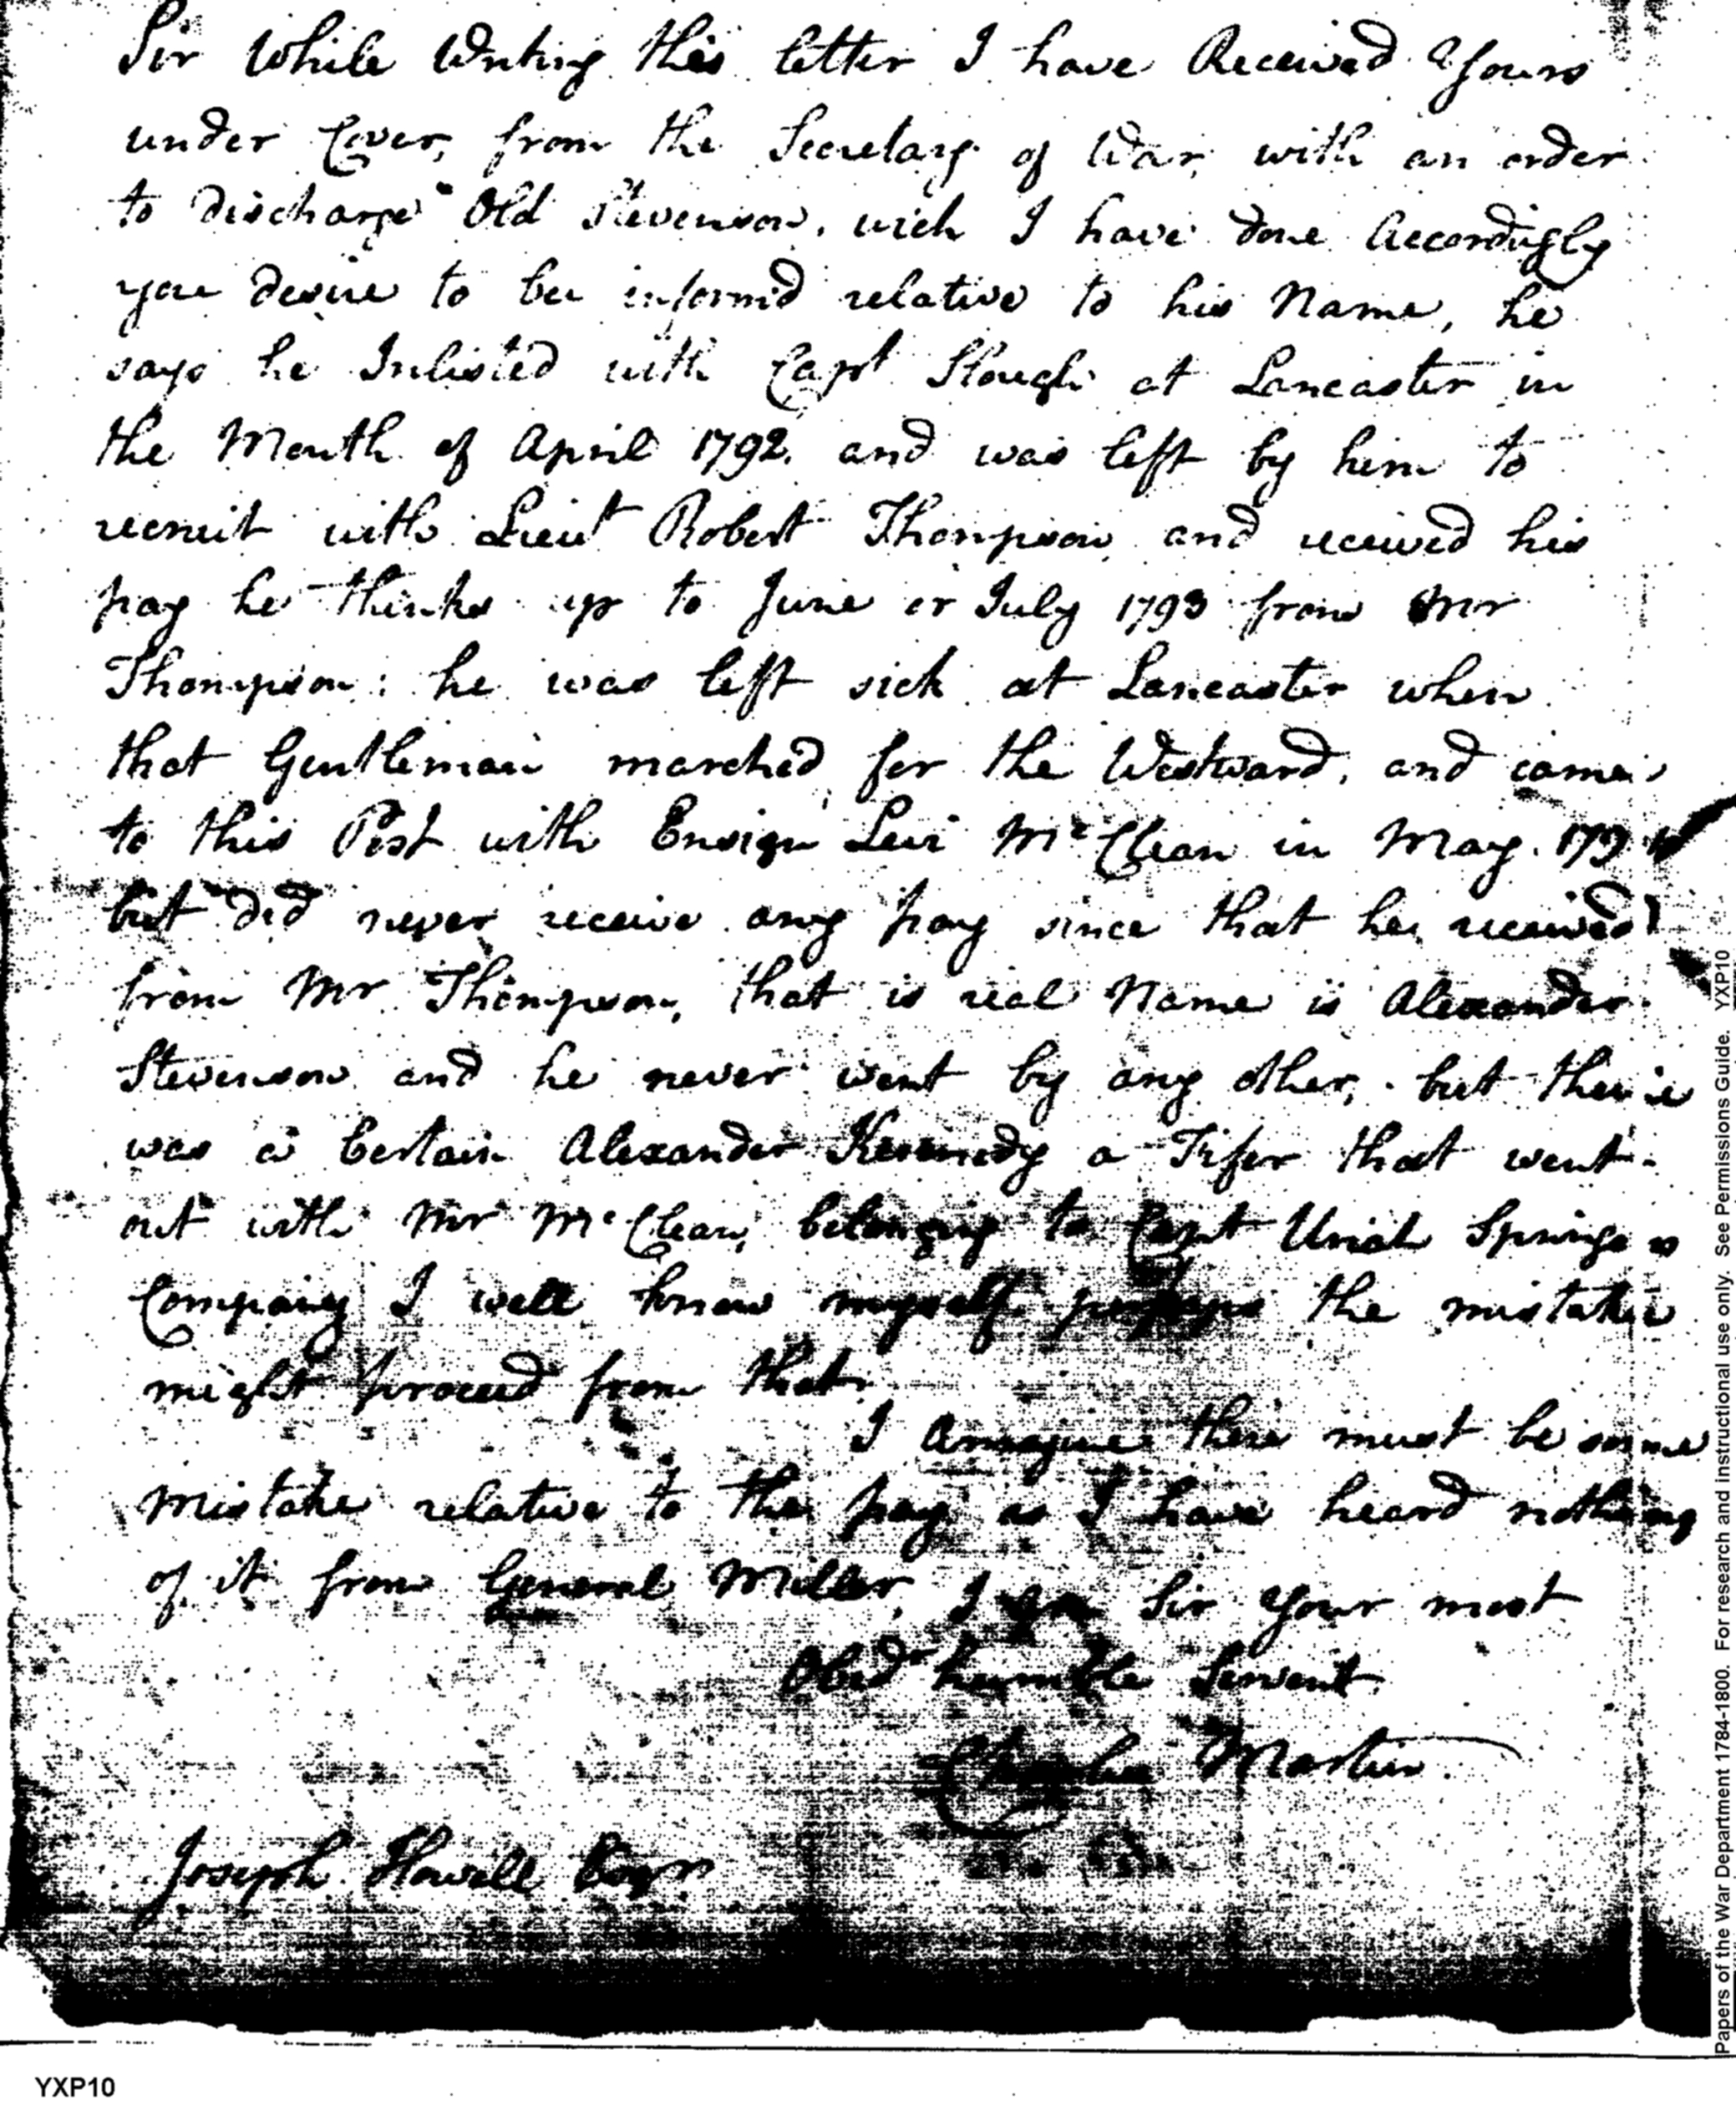 Sir While Writing this letter I have Received Yours
under Cover, from the Secretary of War, with an order
to discharge Old Stevenson, wich I have done Accordingly
you desire to be informd relative to his Name, he
says he Inlisted with Capt Slough at Lancaster in
the Month of April 1792. and was left by him to
recruit with Lieut Robert Thompson, and received his
pay he thinks up to June or July 1793 from Mr
Thompson: he was left sick at Lancaster when
that Gentleman marched for the Westward, and came
to this Post with Ensign Levi McClean in May. 179
but did never receive any pay since that he received
from Mr Thompson, that is real Name is Alexander
Stevenson and he never went by any other, but their
was a Certain Alexander Kennedy a Fifer that went
out with Mr McClean, belonging to Capt Uriah Springs
Company I well know myself perhaps the mistake
might proceed from that.
I Amagine their must be some
Mistake relative to the pay as I have heard nothing
of it from General Miller, I am Sir your most
Obedt humble Servent
Charles Martin.
Joseph Howell Esqr
YXP10
Papers of the War Department 1784-1800. For research and instructional use only. See Permissions Guide. YXP10